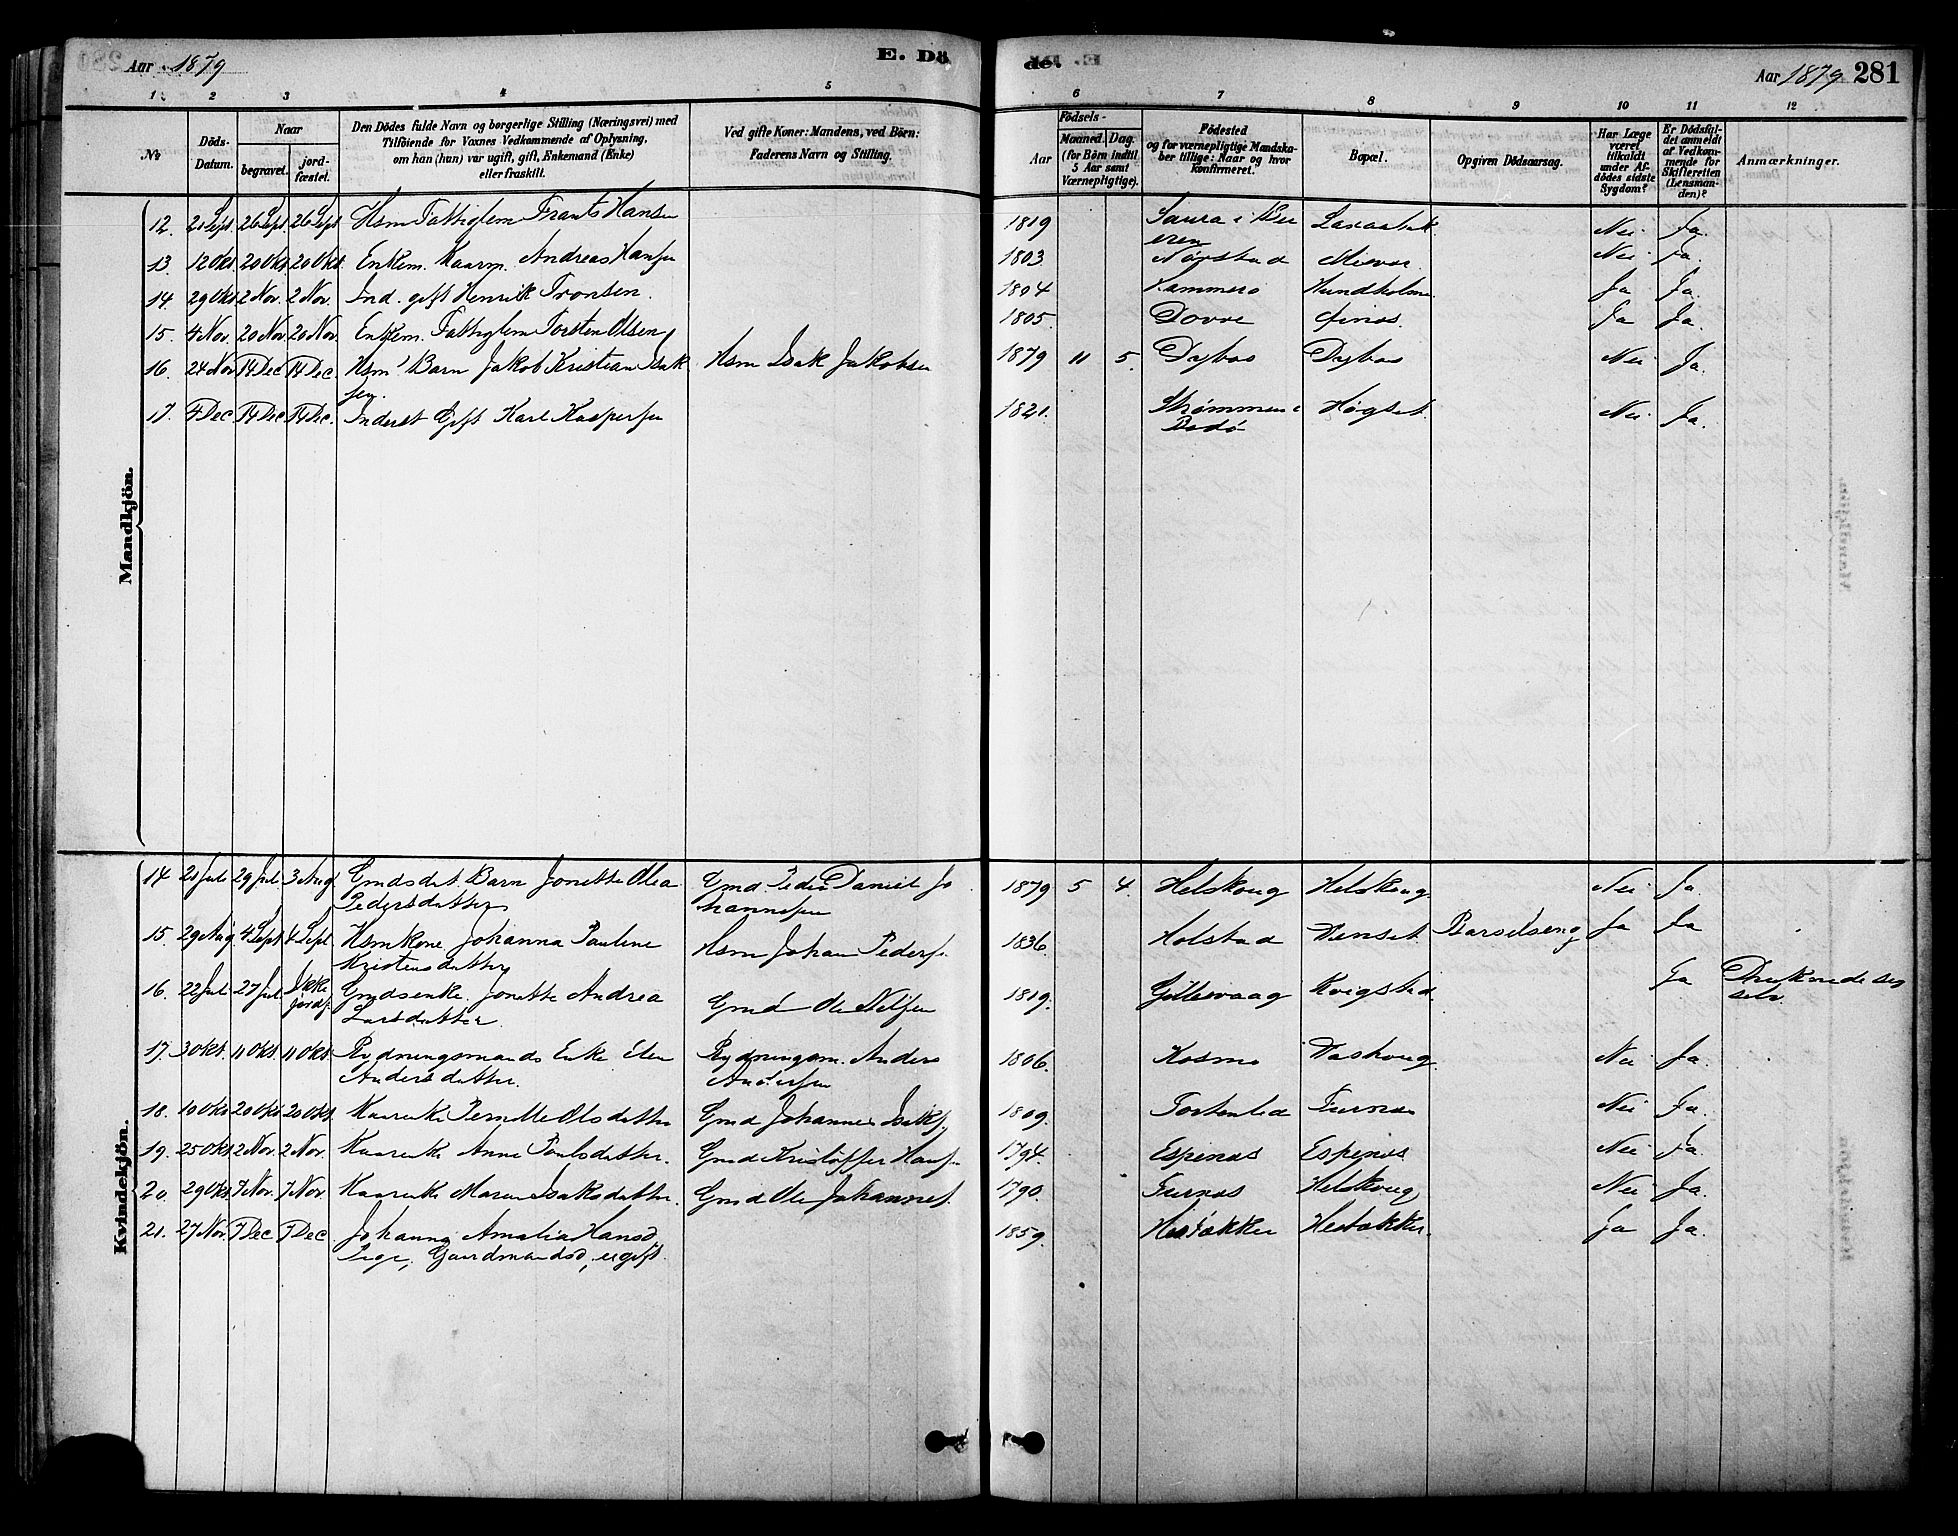 Aar 1879
E. Dö
de.
Aar 1879
281
1 2 3 4 5
6 7 8 9 10 11 12
No
Döds-Datum.
Naar
begravet.
jord-fæstet.
Den Dödes fulde Navn og borgerlige Stilling (Næringsvei) med
Tilföiende for Voxnes Vedkommende af Oplysning,
om han (hun) var ugift, gift, Enkemand (Enke)
eller fraskilt.
Ved gifte Koner: Mandens, ved Börn:
Faderens Navn og Stilling.
Födsels-
Aar
Maaned. Dag.
(for Börn indtil
5 Aar samt
Værnepligtige).
Födested
og for værnepligtige Mandska-
ber tillige: Naar og hvor
konfirmeret.
Bopæl.
Opgiven Dödsaarsag.
Har Læge
været
tilkaldt
under Af-
dödes sidste
Sygdom?
Er Dödsfal-
det anmeldt
af Vedkom-
mende for
Skifteretten
(Lensman-
den)?
Anmærkninger.
Mandkjön.
12. 21 Sept. 26 Sept 26 Sept Hsm Fattiglem Frants Hansen 1819 Saura i Nei Ja.
13. 12 Okt 20 Okt 20 Okt. Enkem. Kaarm. Andreas Hansen 1803. Nei Ja.
14. 29 Okt 2 Nov. 2 Nov. Ind. gift Henrik Tronsen. Hundholm Ja Ja.
15. 4 Nov. 20 Nov. 20 Nov. Enkem. Fattiglem Torsten Olsen 1805. Dovre Finös. Ja Ja.
16. 24 Nov 14 Dec 14 Dec. Hsm' Barn Jakob Kristian Isak Hsm Isak Jakobsen 1879 11 5. Dybos Dybos Nei Ja.
sen.
17. 4 Dec 14 Dec 14 Dec. Inderst Gift Karl Kaspersen 1821. Strømmen i Høgset. Nei Ja.
Bodö
Kvindekjön.
14 21 Juli 29 Jul 3 Aug Gmdsdat. Barn Jonette Olea Gmd. Peder Daniel Jo 1879 5 4. Helskoug Helskoug. Nei Ja.
Pedersdatter hannesen
15. 29 Aug. 4 Sept 4 Sept Hsmkone Johanna Pauline Hsm Johan Peders. 1836. Holstad Venset Barselseng Ja Ja
Kristensdatter
16. 22 Jul 27 Jul Ikke jordf. Gmdsenke. Jonette Andrea Gmd Ole Nilsen 1819. Gillesvaag Kvigstad Ja Druknede sig
Larsdatter. selv.
17. 3 Okt. 11 Okt. 11 Okt. Rydningsmands Enke Elen Rydningsm. Anders 1806. Kosmo Vaskoug Nei Ja.
Andersdatter. Andersen
18. 10 Okt 20 Okt 20 Okt. Kaarenke Pernille Olsdatter Gmd Johannes Isaks. 1809. Tortenlid Furnes Nei Ja.
19. 25 Okt 2 Nov. 2 Nov. Kaarenke Anne Poulsdatter. Gmd Kristoffer Hansen 1794. Espenes Espenes Nei Ja.
20. 29 Okt. 7 Nov. 7 Nov. Kaarenke Maren Isaksdatter. Gmd Ole Johannes. 1790. Furnes Helskoug Nei Ja.
21. 27 Nov. 7 Dec 7 Dec Johanna Amalia Hansd 1859. Hestakker Hestakker. Ja Ja.
Pige, Gaardmandsd, ugift.